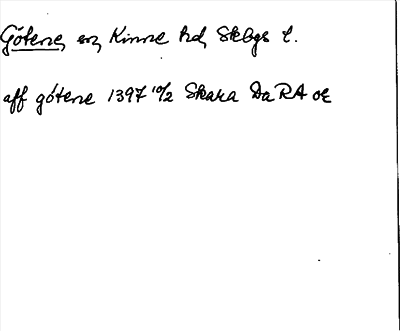 Götene, sn, Kinne hd, Skbgs l.
aff götene 1397 10/2 Skara DaRA or